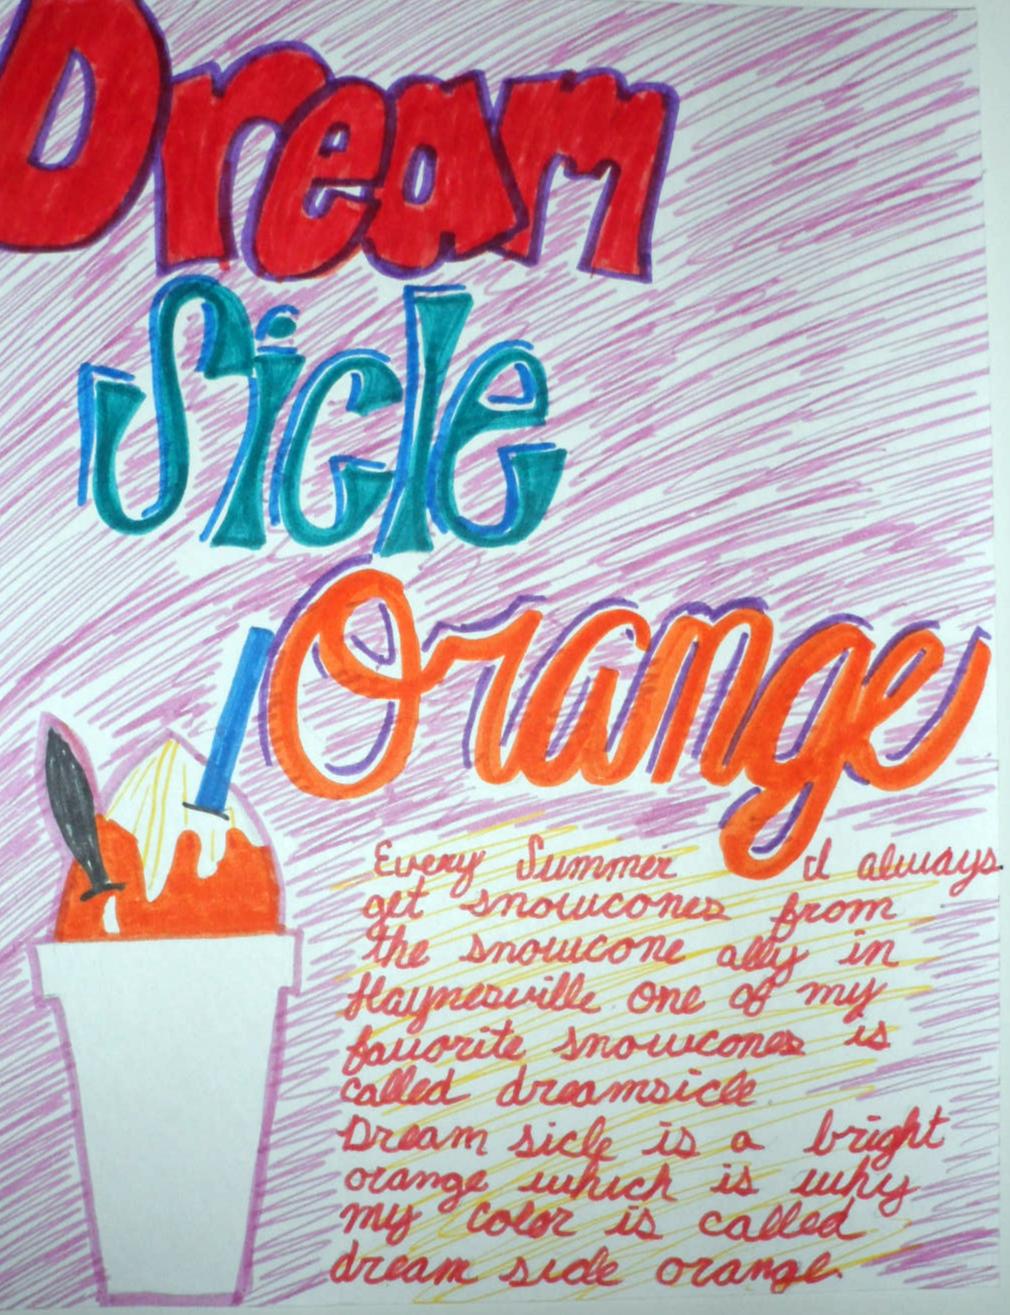 Dream
Sicle
Orange
Every Summer I always
get snowcones from
the snowcone ally in
Haynesville one of my
favorite snowcones is
called dreamsicle.
Dream sicle is a bright
orange which is why
my color is called
dream sicle orange.